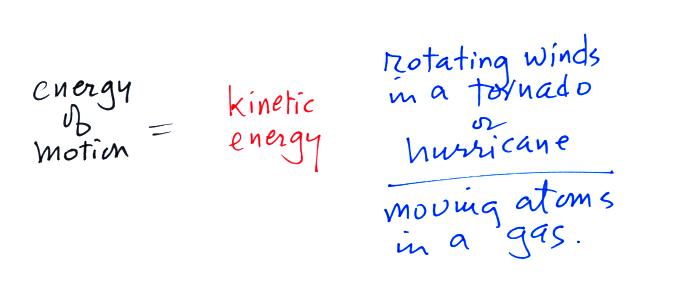 energy
of
motion =
kinetic
energy
rotating winds
in a tornado
or
hurricane
moving atoms
in a gas.